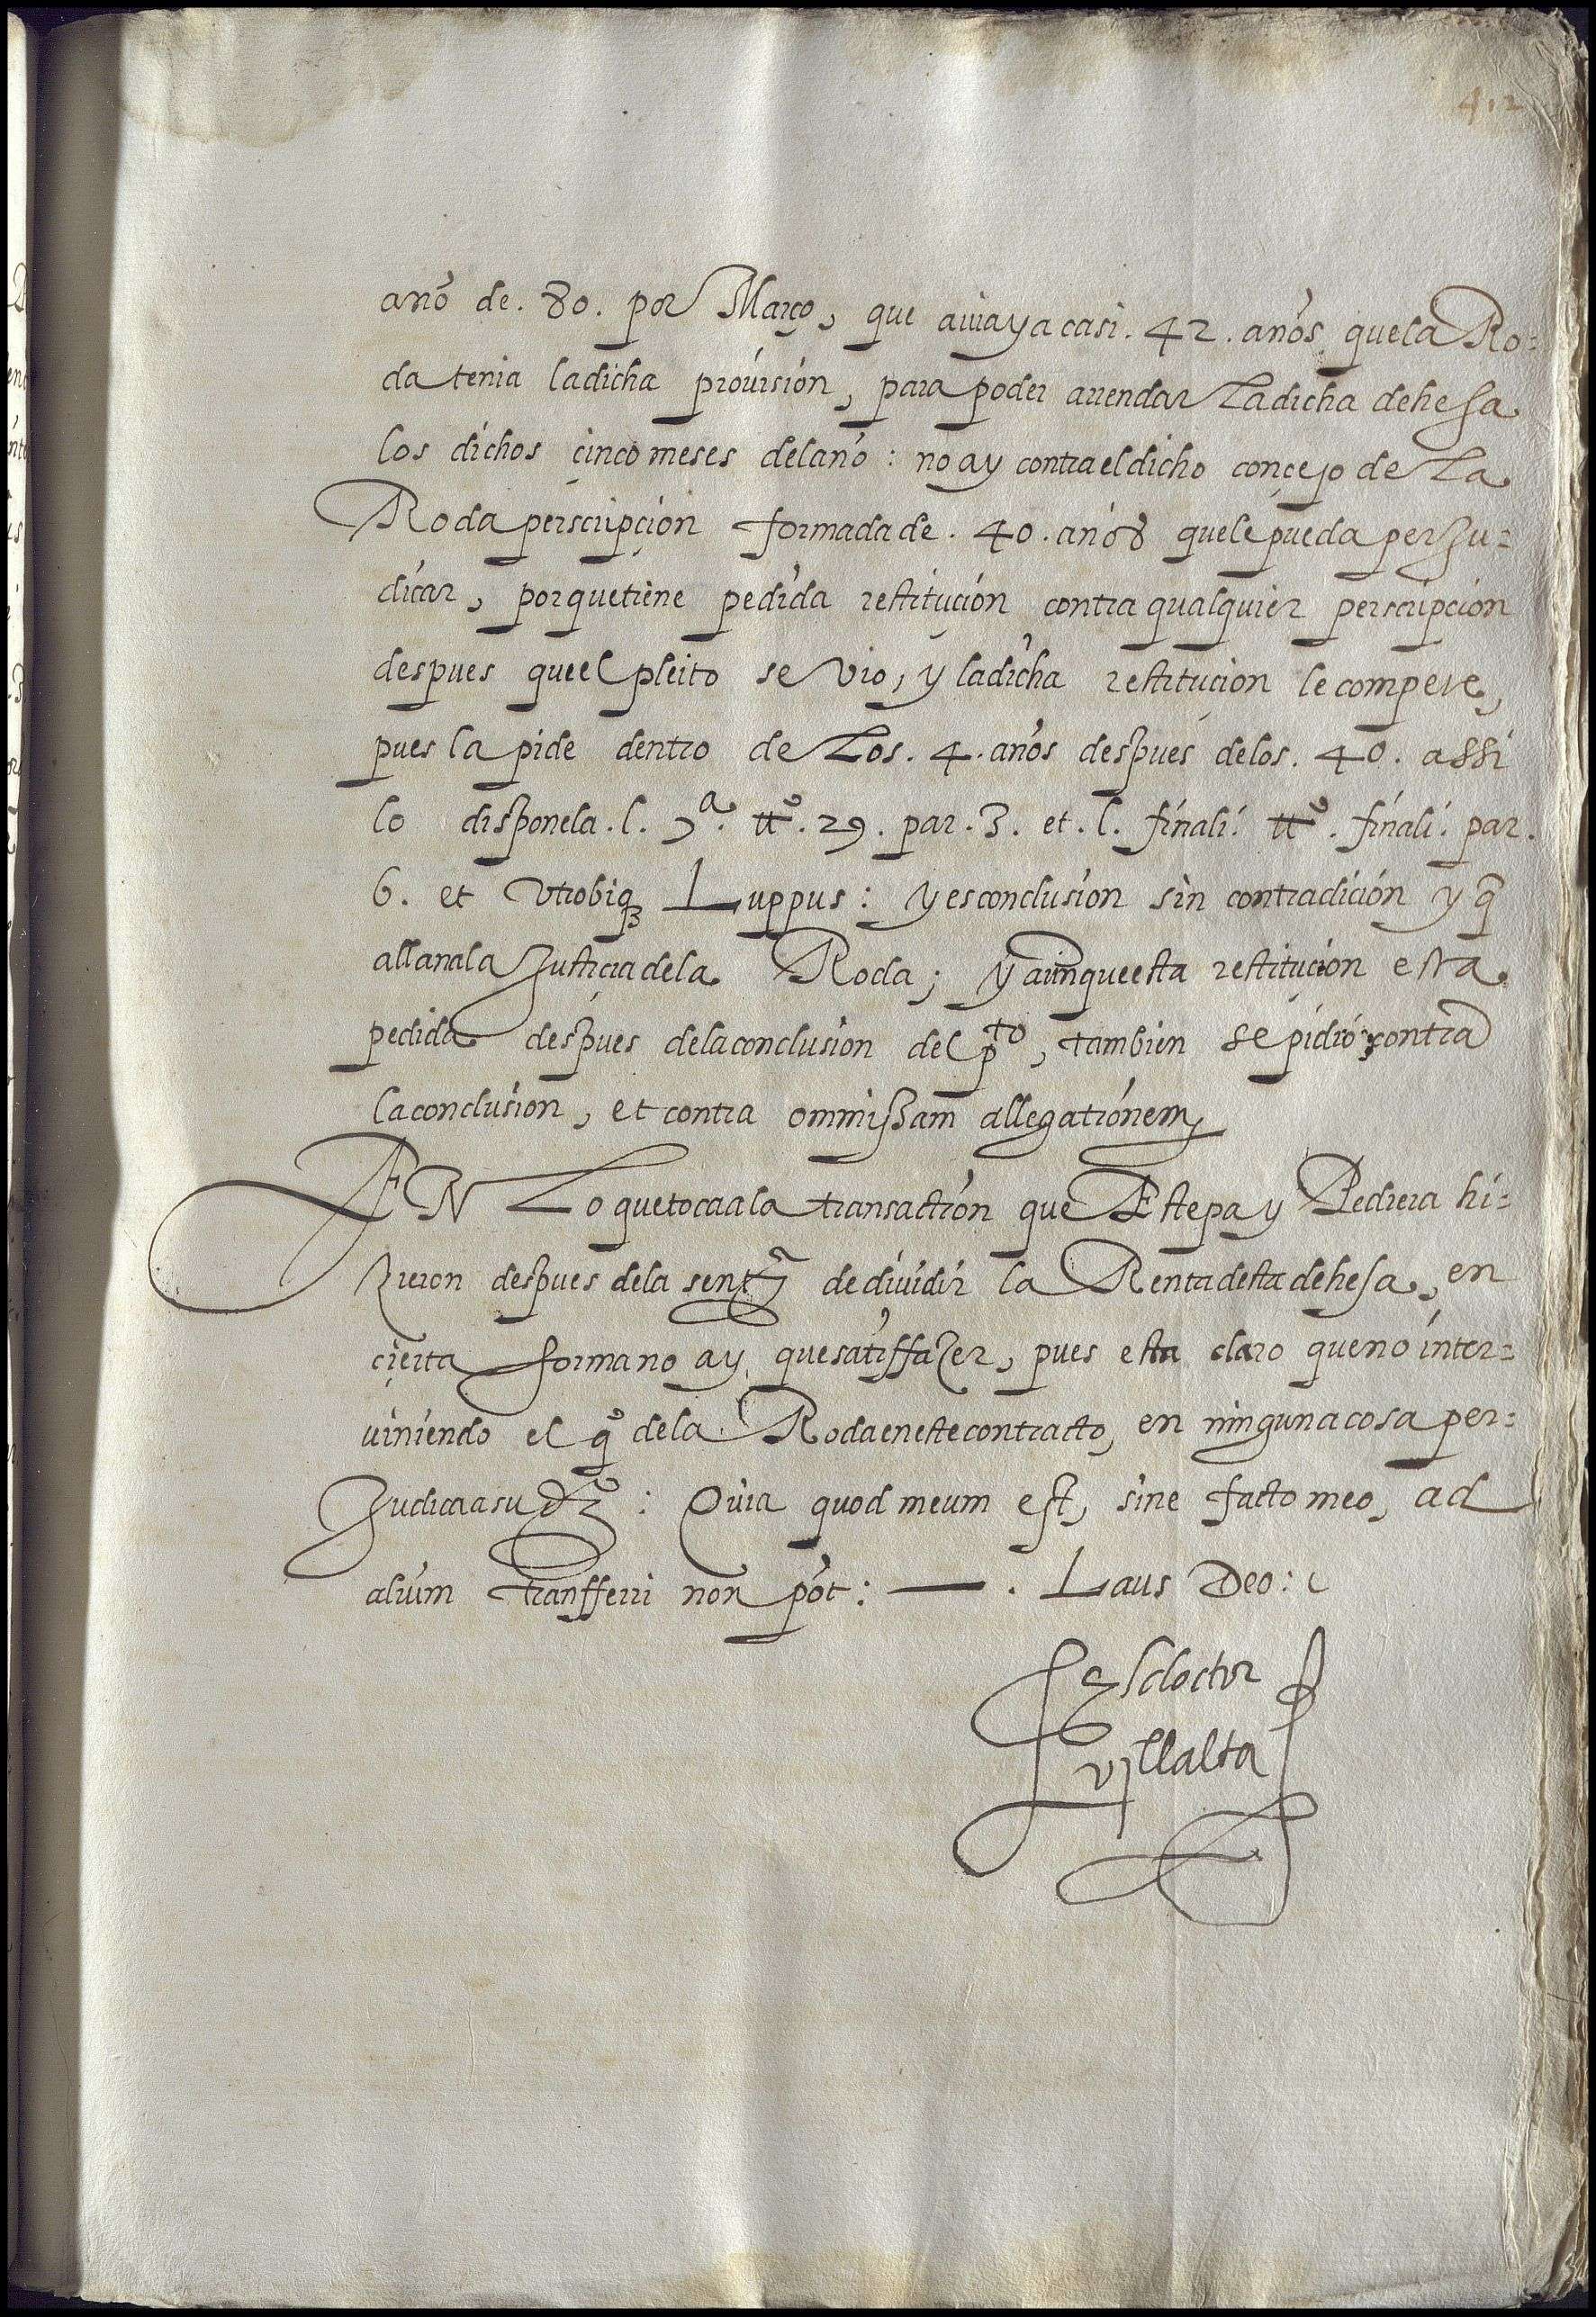 412
año de. 80. por Março, que auia ya casi. 42. años que la Ro=
da tenia la dicha prouision, para poder arrendar La dicha dehesa
los dichos çinco meses del año: no ay contra el dicho conçejo de La
Roda perscripçion formada de. 40. años que le pueda perju=
dicar, porque tiene pedida restituçion contra qualquier perscripçion
despues que el pleito se vio, y la dicha restituçion le compete,
pues la pide dentro de Los. 4. años despues de los. 40. assi
lo dispone la. l. 7ª. ttº. 29. par. 3. et. l. finali. ttº. finali. par.
6. et vtrobiqȝ Luppus: y es conclusion sin contradiçion y q̃
allana la justiçia de la Roda; y aunque esta restituçion esta
pedida despues de la conclusion del pto, tambien se pidio contra
la conclusion, et contra ommissam allegationem
EN Lo que toca a la transaction que Estepa y Pedrera hi=
zieron despues de la sentª de diuidir la Renta desta dehesa, en
çierta forma no ay que satisffazer, pues esta claro que no inter=
uiniendo el qº de la Roda en este contracto, en ninguna cosa per=
judica a su drº: Quia quod meum est, sine facto meo, ad
alium transfferri non pót: — . Laus Deo:
El doctor
villalta